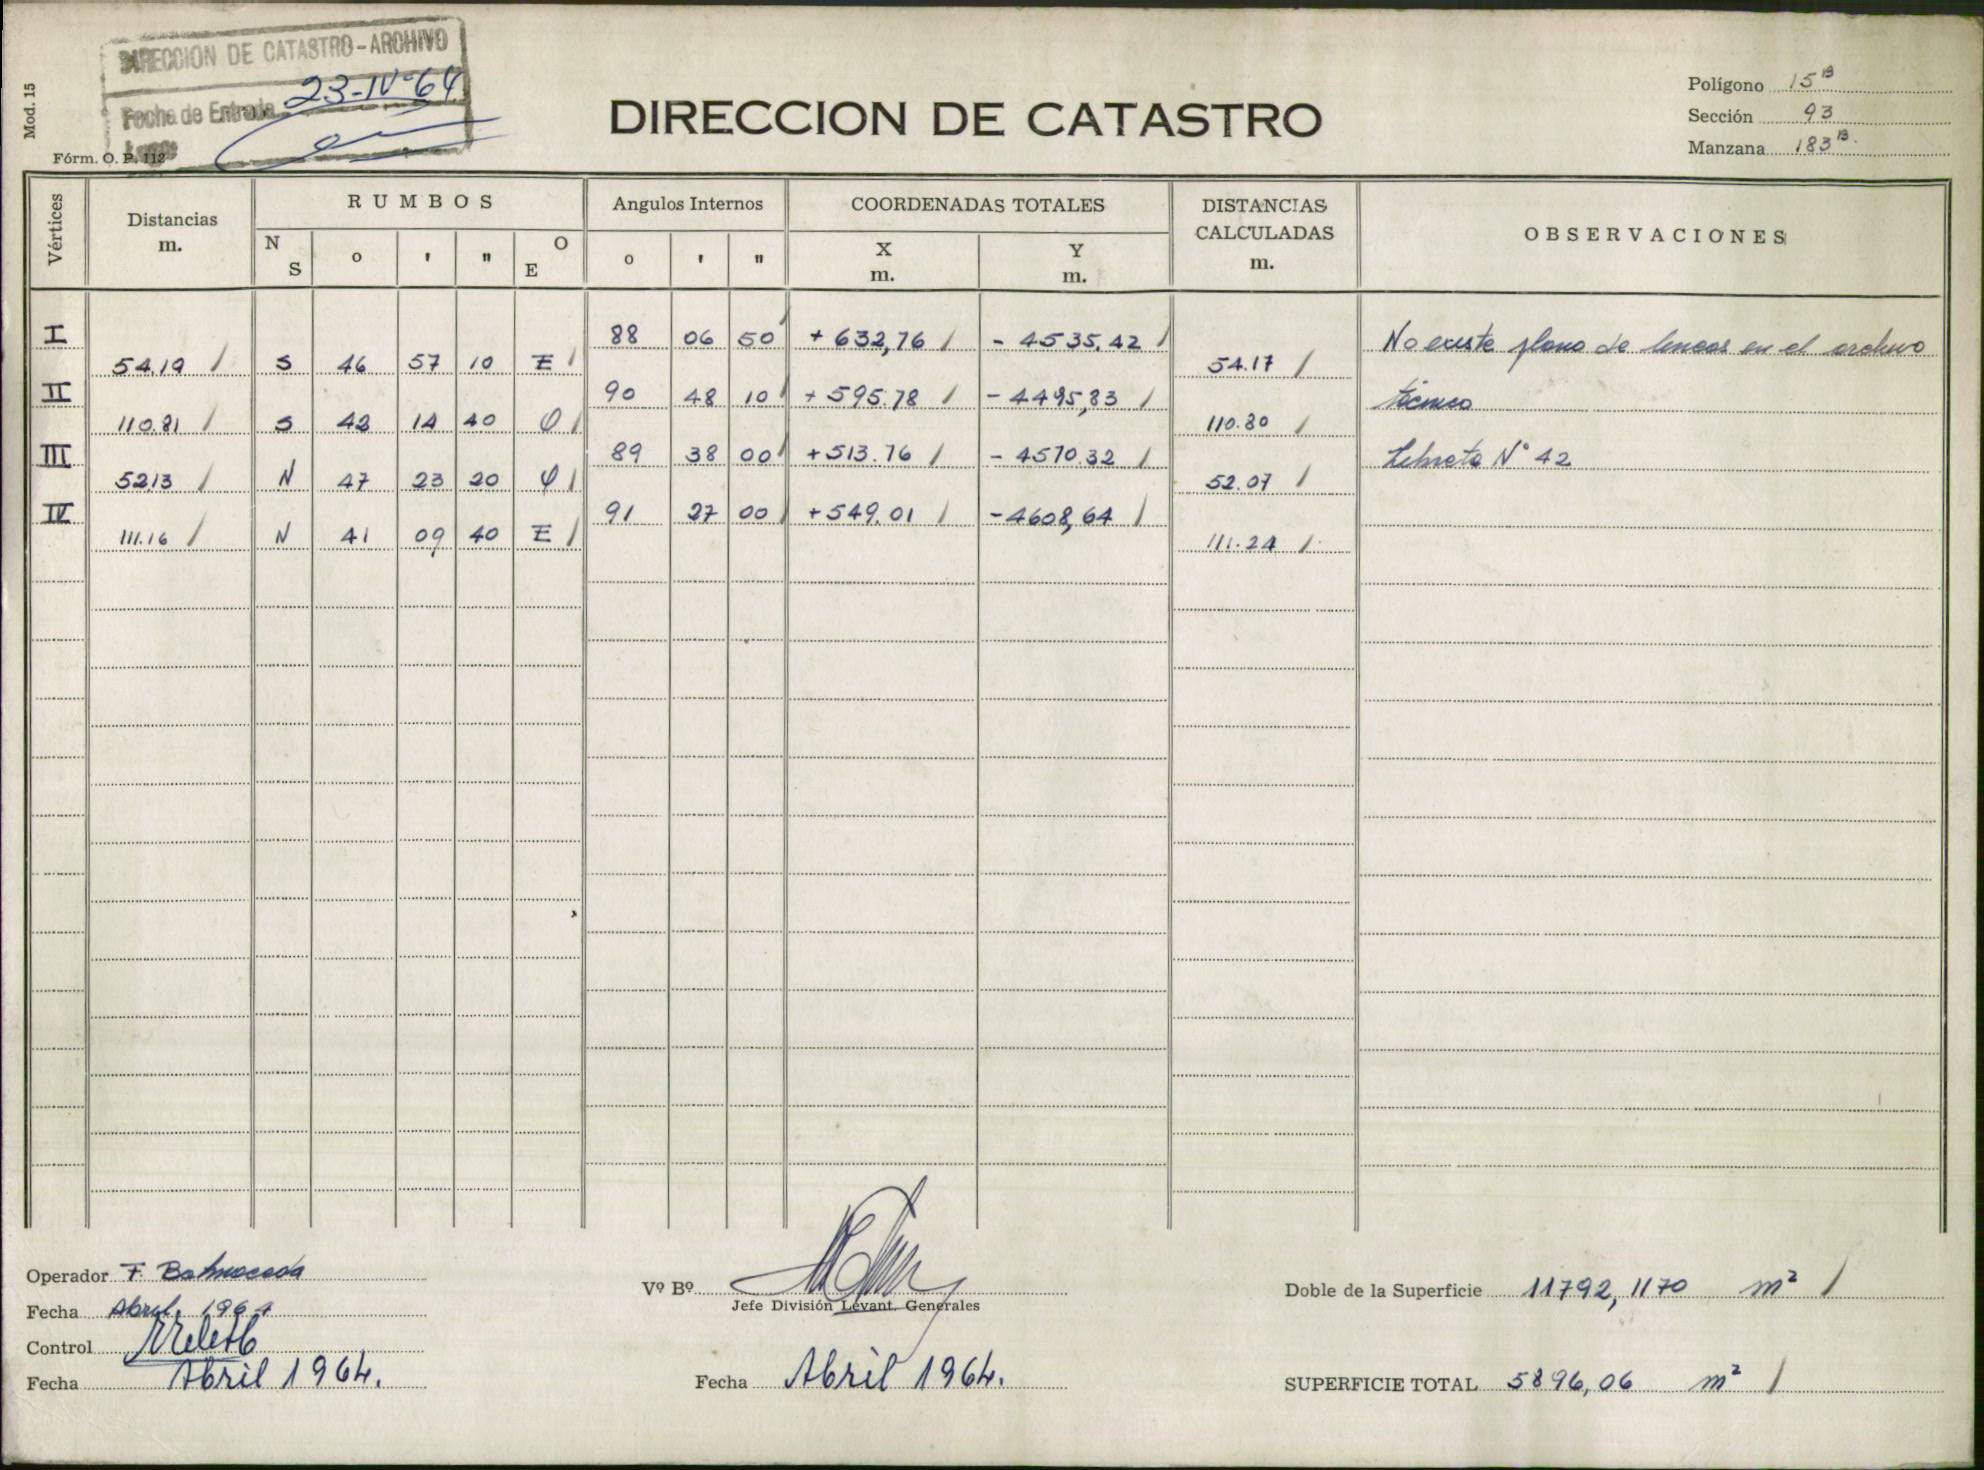 DIRECCION DE CATASTRO-ARCHIVO
Fecha de Entrada 23-IV-64
Mod. 15
Fórm. O. P. 112
DIRECCION DE CATASTRO
Polígono 15 B
Sección 93
Manzana 183 B
Vértices
Distancias
m.
RUMBOS
N S o ' " E O
Angulos Internos
o ' "
COORDENADAS TOTALES
X
m.
Y
m.
DISTANCIAS
CALCULADAS
m.
OBSERVACIONES
I 88 06 50 + 632,76 - 4535.42 No existe plano de lineas en el archivo
54.19 S 46 57 10 E 54.17
II 90 48 10 + 595.78 - 4495,83 técnico
110.81 S 42 14 40 O 110.80
III 89 38 00 + 513.76 - 4570.32 Libreta N° 42
52.13 N 47 23 20 O 52.07
IV 91 27 00 + 549.01 - 4608,64
111.16 N 41 09 40 E 111.24
Operador F. Balmaceda
Fecha Abril. 1964
Control
Fecha Abril 1964.
Vº Bº
Jefe División Levant. Generales
Fecha Abril 1964.
Doble de la Superficie 11792,1170 m²
SUPERFICIE TOTAL 5896,06 m²